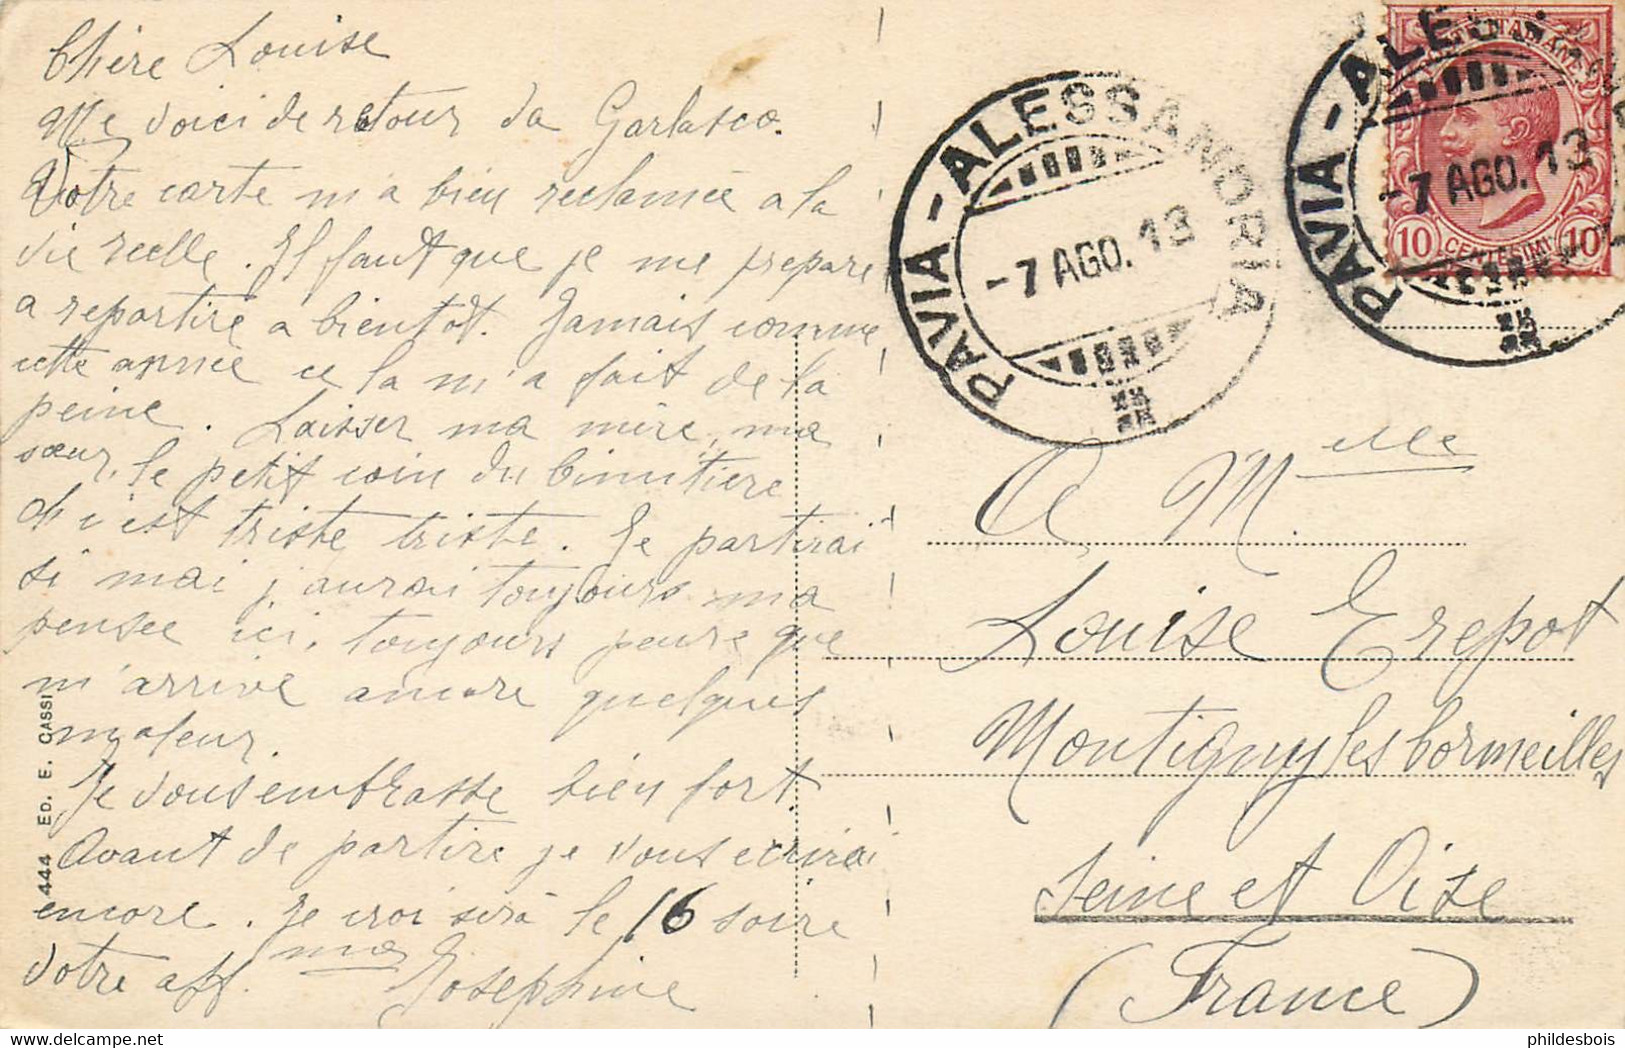 Chère Louise
Me voici de retour da Garlasco.
Votre carte m'a bien reclamée a la
vie reelle. Il faut que je me prepare
a repartire a bientot. Jamais comme
cette annee ce la m'a fait de la
peine. Laisser ma mère, ma
sœur, le petit coin du Cimitiere
c'est triste triste. Je partirai
si mai j'aurai toujours ma
pensee ici. toujours peure que
m'arrive ancore quelques
maleur.
Je vous embrasse bien fort
Avant de partire je vous ecrirai
encore. Je croi serà le 16 soire
Votre aff.ma Josephine
444 ED. E. CASSI
PAVIA - ALESSANDRIA
-7 AGO. 13
PAVIA - ALE
-7 AGO. 13
10 CENTESIMI 10
A M.elle
Louise Erepot
Montigny les Cormeilles
Seine et Oise
(France)
phildesbois